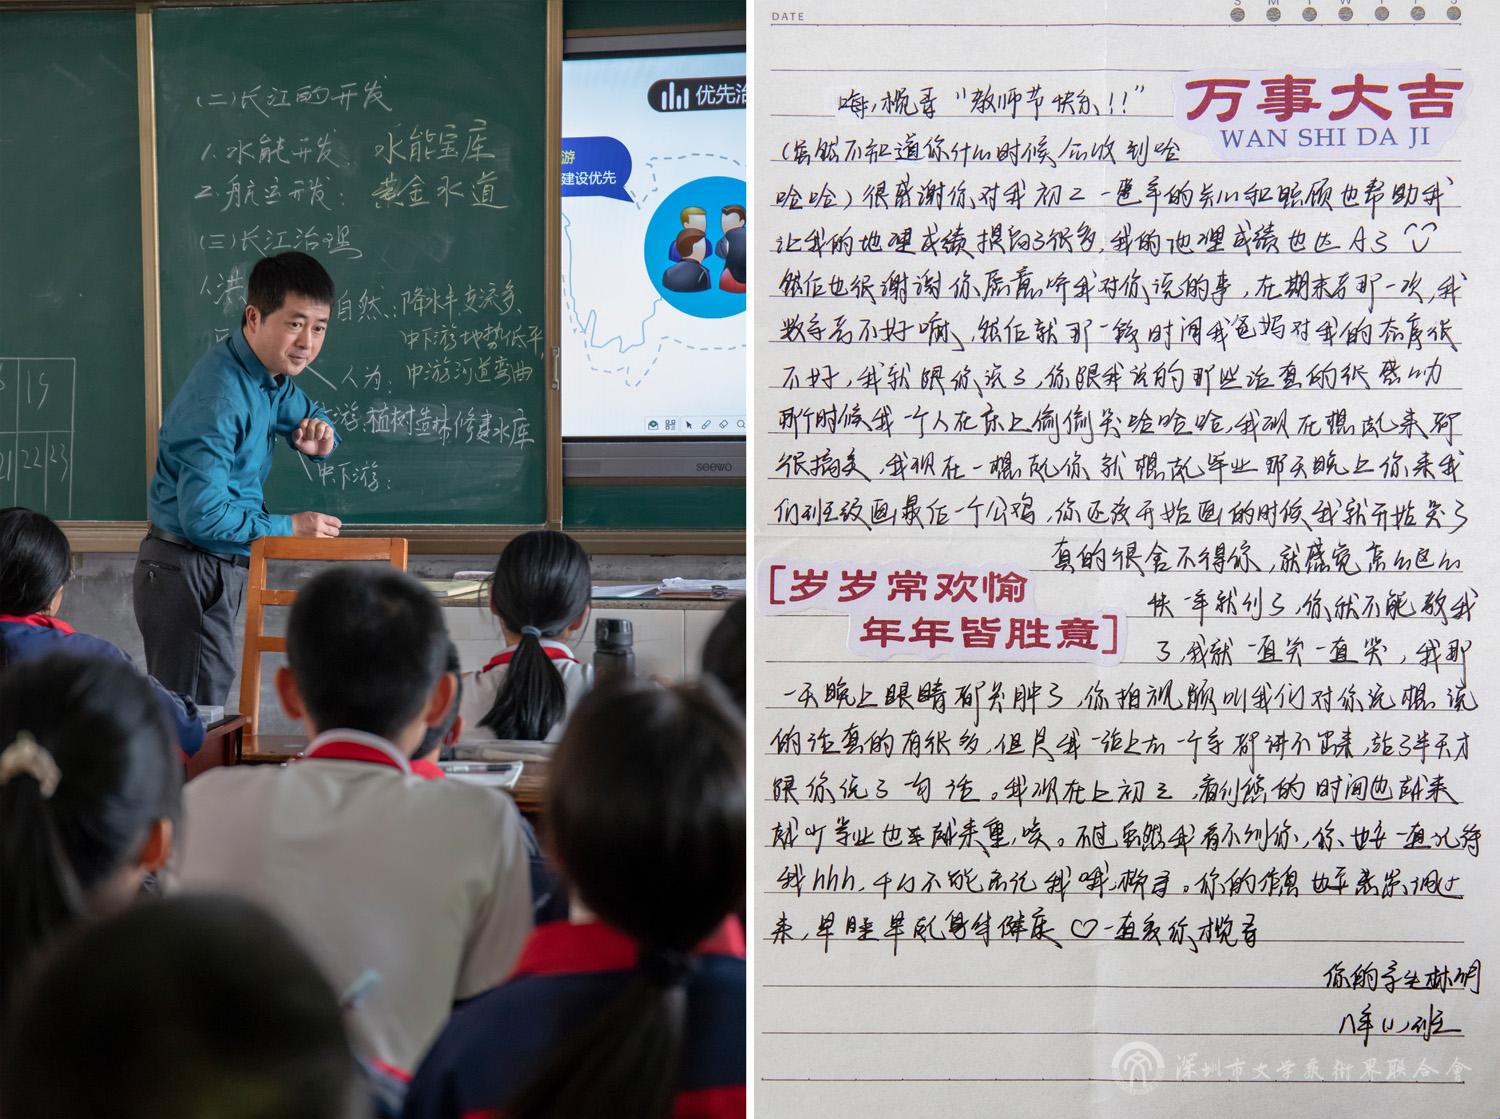 (二)长江的开发
1.水能开发: 水能宝库
2.航运开发: 黄金水道
(三)长江治理
1.洪
自然: 降水丰, 支流多,
中下游地势低平,
人为: 中游河道弯曲
游: 植树造林 修建水库
中下游:
19
21 22 23
优先治
游
建设优先
seewo
DATE
S M T W T F S
万事大吉
WAN SHI DA JI
嗨, "教师节快乐!!"
(虽然不知道你什么时候会收到哈
哈哈)很感谢你对我初二一整年的关心和照顾也帮助我
让我的地理成绩提高了很多,我的地理成绩也达A了
然后也很谢谢你愿意听我对你说的事,在期末考那一次,我
数学考不好嘛,然后就那一段时间我爸妈对我的态度很
不好,我就跟你说了,你跟我说的那些话真的很感动
那个时候我一个人在床上偷偷哭哈哈哈,我现在想起来都
很搞笑,我现在一想起你就想起毕业那天晚上你来我
们班级画最后一个公鸡,你还没开始画的时候我就开始哭了
真的很舍不得你,就感觉怎么这么
[岁岁常欢愉
年年皆胜意]
快一年就到了,你就不能教我
了,我就一直哭一直哭,我那
一天晚上眼睛都哭肿了,你拍视频叫我们对你说想说
的话真的有很多,但是我一站上去一个字都讲不出来,站了半天才
跟你说了一句话。我现在上初三,看到您的时间也越来
越少学业也越来越重,唉。不过虽然我看不到你,你也要一直记得
我hhh,千万不能忘记我哦。你的作息也要亲亲调过
来,早睡早起身体健康♡一直爱你
你的学生林明
八年(1)班
深圳市文学艺术界联合会